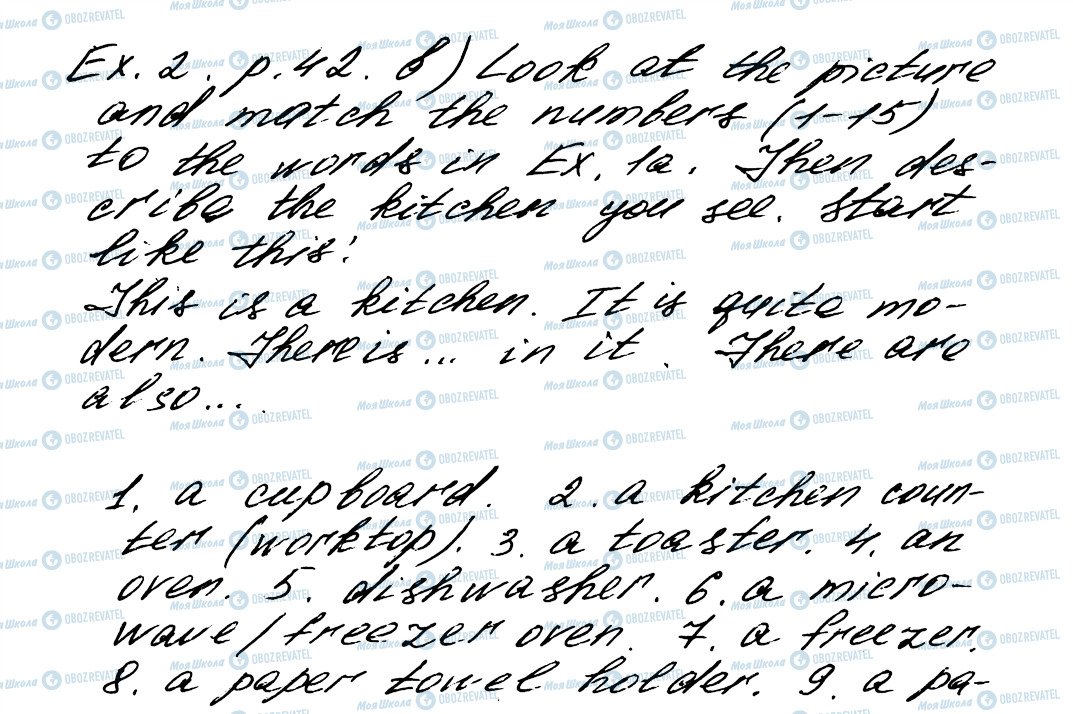 Ex. 2. p. 42. b) Look at the picture
and match the numbers (1-15)
to the words in Ex. 1a. Then des-
cribe the kitchen you see. Start
like this:
This is a kitchen. It is quite mo-
dern. There is... in it. There are
also...
1. a cupboard. 2. a kitchen coun-
ter (worktop). 3. a toaster. 4. an
oven. 5. dishwasher. 6. a micro-
wave / freezer oven. 7. a freezer.
8. a paper towel holder. 9. a pa-